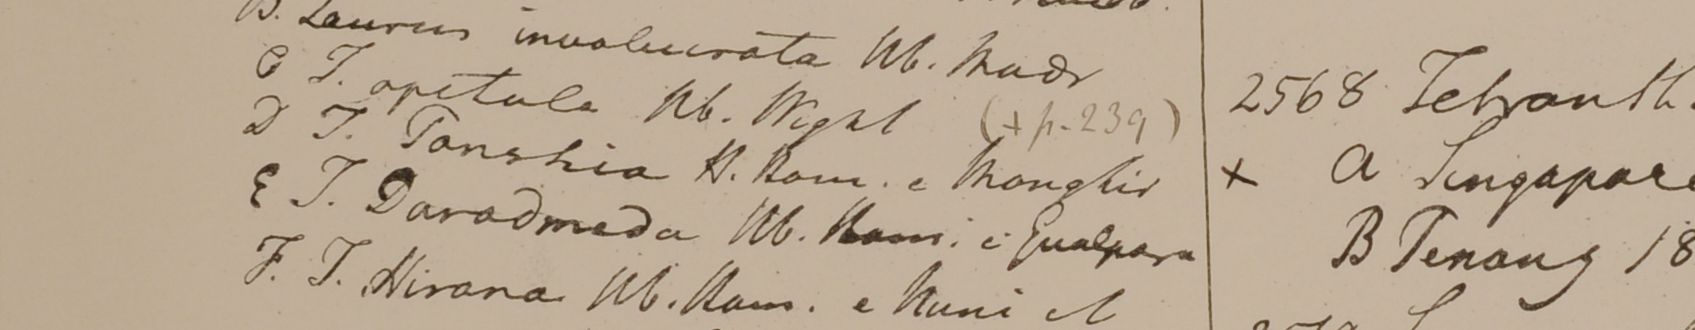 B. Laurus involucrata Hb. Madr
C T. apetala Hb. Wight (+ p. 239)
D T. Tanshia H. Ham. e Monghir
E T. Daradmeda Hb. Ham. e Gualpara
F. T. Hirana Hb. Ham. e
2568 Tetranth
+ a Singapore
B Penang 18